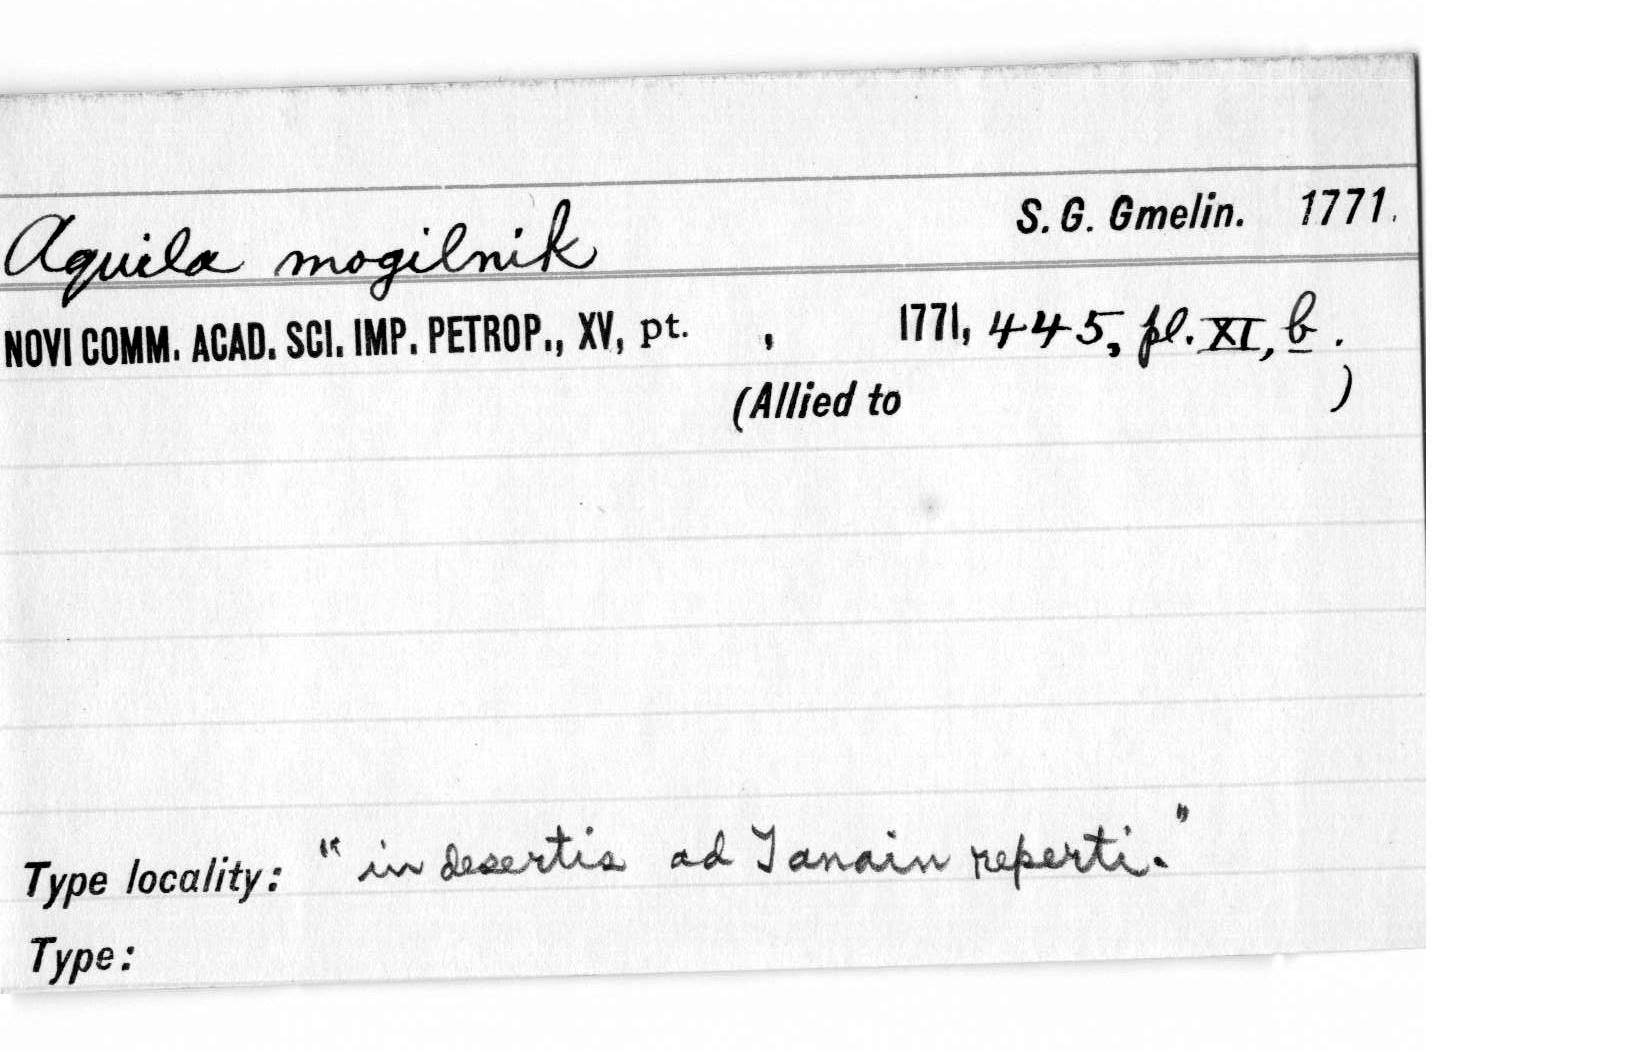 Aquila mogilnik S. G. Gmelin. 1771.
NOVI COMM. ACAD. SCI. IMP. PETROP., XV, pt. , 1771, 445, pl. XI, b.
(Allied to )
Type locality: "in desertis ad Tanain reperti."
Type: